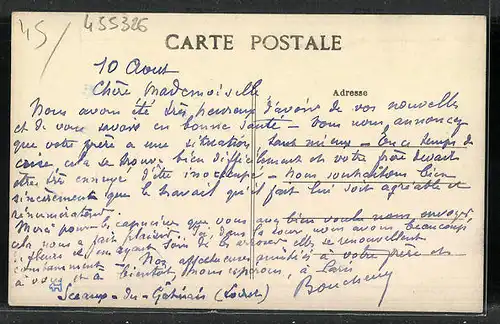 45/ 455326
CARTE POSTALE
Adresse
10 Aout
Chère Mademoiselle
Nous avons été très heureux d'avoir de vos nouvelles
et de vous savoir en bonne santé — Vous nous annoncez
que votre père a une situation tant mieux — En ce temps de
crise cela se trouve bien difficilement et votre père devait
être très ennuyé d'être inoccupé — Nous souhaitons bien
sincèrement que le travail qu'il fait lui soit agréable et
rémunérateur.
Merci pour les que vous avez bien voulu nous envoyer
cela nous a fait plaisir. Ici dans la cour, nous avons beaucoup
de fleurs et en ayant soin de les elles se renouvellent
constamment — Nos affectueuses amitiés à votre père et
à vous et à bientôt nous espérons, à Paris
Boucheny
Sceaux-du-Gâtinais (Loiret)